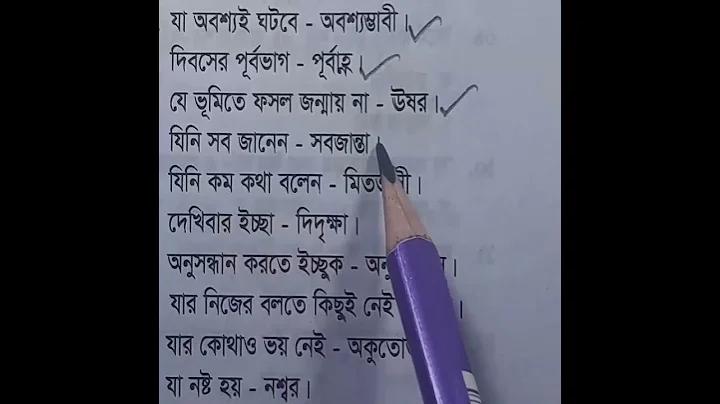 যা অবশ্যই ঘটবে - অবশ্যম্ভাবী।
দিবসের পূর্বভাগ - পূর্বাহ্ণ।
যে ভূমিতে ফসল জন্মায় না - ঊষর।
যিনি সব জানেন - সবজান্তা।
যিনি কম কথা বলেন -
দেখিবার ইচ্ছা - দিদৃক্ষা।
অনুসন্ধান করতে ইচ্ছুক -
যার নিজের বলতে কিছুই নেই
যার কোথাও ভয় নেই -
যা নষ্ট হয় - নশ্বর।